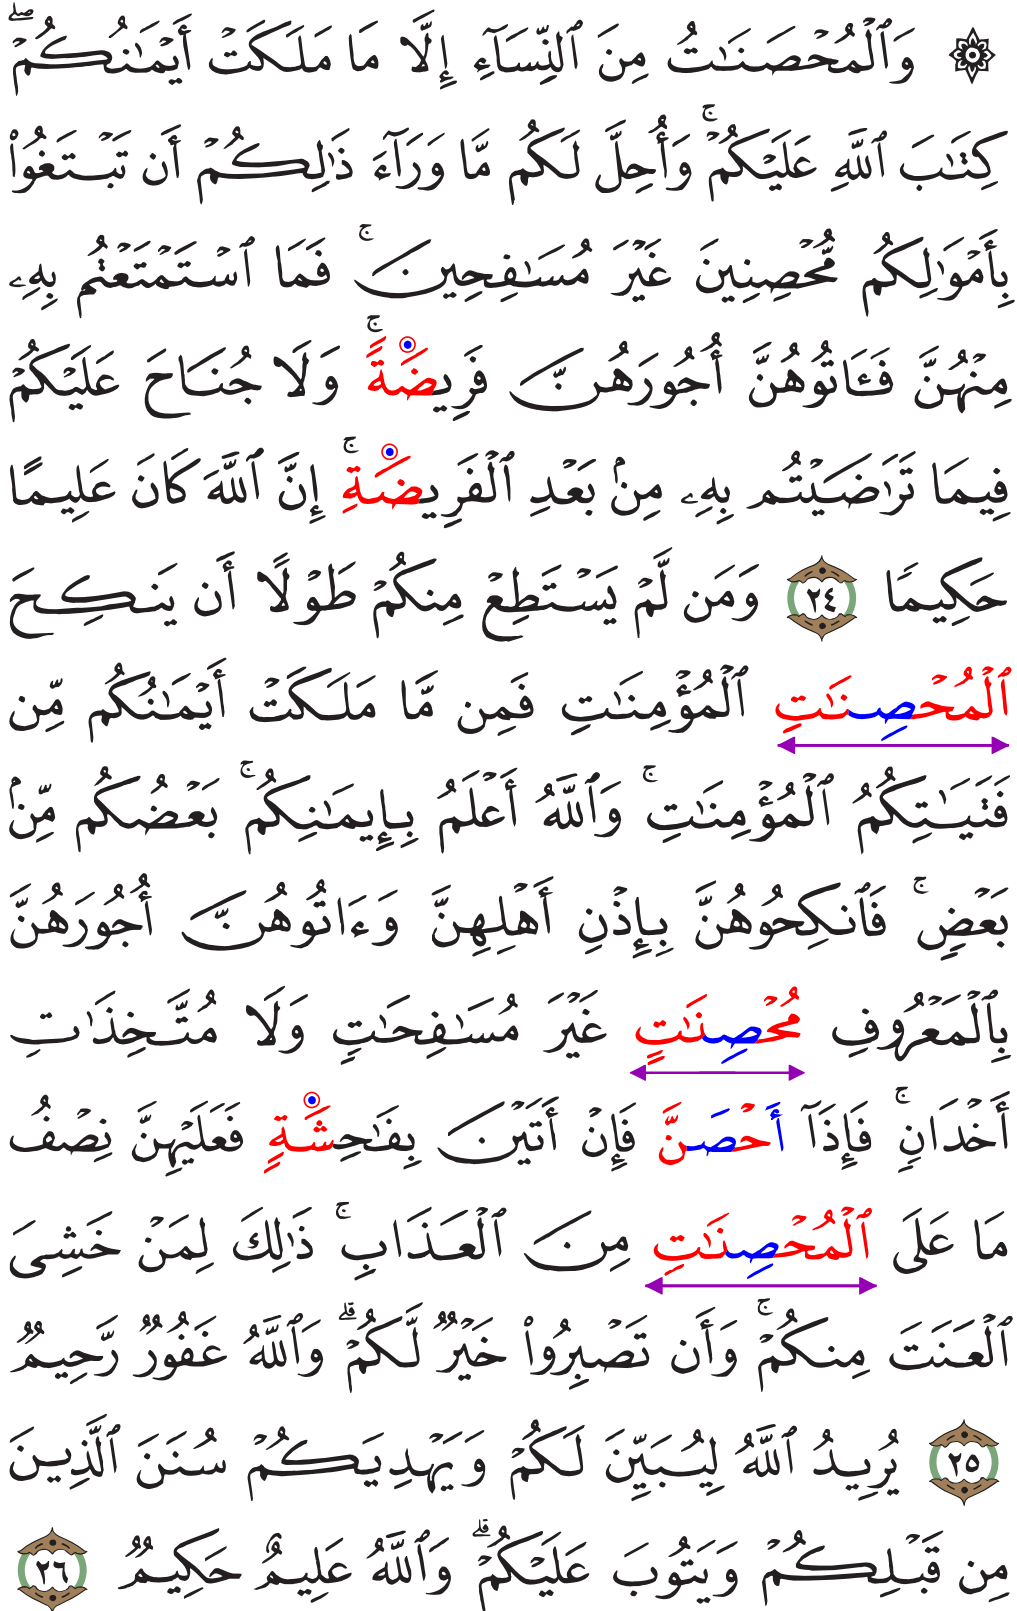 ۞ وَٱلْمُحْصَنَٰتُ مِنَ ٱلنِّسَآءِ إِلَّا مَا مَلَكَتْ أَيْمَٰنُكُمْ ۖ
كِتَٰبَ ٱللَّهِ عَلَيْكُمْ ۚ وَأُحِلَّ لَكُم مَّا وَرَآءَ ذَٰلِكُمْ أَن تَبْتَغُوا۟
بِأَمْوَٰلِكُم مُّحْصِنِينَ غَيْرَ مُسَٰفِحِينَ ۚ فَمَا ٱسْتَمْتَعْتُم بِهِۦ
مِنْهُنَّ فَـَٔاتُوهُنَّ أُجُورَهُنَّ فَرِيضَةً ۚ وَلَا جُنَاحَ عَلَيْكُمْ
فِيمَا تَرَٰضَيْتُم بِهِۦ مِنۢ بَعْدِ ٱلْفَرِيضَةِ ۚ إِنَّ ٱللَّهَ كَانَ عَلِيمًا
حَكِيمًا ٢٤ وَمَن لَّمْ يَسْتَطِعْ مِنكُمْ طَوْلًا أَن يَنكِحَ
ٱلْمُحْصِنَٰتِ ٱلْمُؤْمِنَٰتِ فَمِن مَّا مَلَكَتْ أَيْمَٰنُكُم مِّن
فَتَيَٰتِكُمُ ٱلْمُؤْمِنَٰتِ ۚ وَٱللَّهُ أَعْلَمُ بِإِيمَٰنِكُم ۚ بَعْضُكُم مِّنۢ
بَعْضٍ ۚ فَٱنكِحُوهُنَّ بِإِذْنِ أَهْلِهِنَّ وَءَاتُوهُنَّ أُجُورَهُنَّ
بِٱلْمَعْرُوفِ مُحْصِنَٰتٍ غَيْرَ مُسَٰفِحَٰتٍ وَلَا مُتَّخِذَٰتِ
أَخْدَانٍ ۚ فَإِذَآ أَحْصَنَّ فَإِنْ أَتَيْنَ بِفَٰحِشَةٍ فَعَلَيْهِنَّ نِصْفُ
مَا عَلَى ٱلْمُحْصِنَٰتِ مِنَ ٱلْعَذَابِ ۚ ذَٰلِكَ لِمَنْ خَشِىَ
ٱلْعَنَتَ مِنكُمْ ۚ وَأَن تَصْبِرُوا۟ خَيْرٌ لَّكُمْ ۗ وَٱللَّهُ غَفُورٌ رَّحِيمٌ
٢٥ يُرِيدُ ٱللَّهُ لِيُبَيِّنَ لَكُمْ وَيَهْدِيَكُمْ سُنَنَ ٱلَّذِينَ
مِن قَبْلِكُمْ وَيَتُوبَ عَلَيْكُمْ ۗ وَٱللَّهُ عَلِيمٌ حَكِيمٌ ٢٦